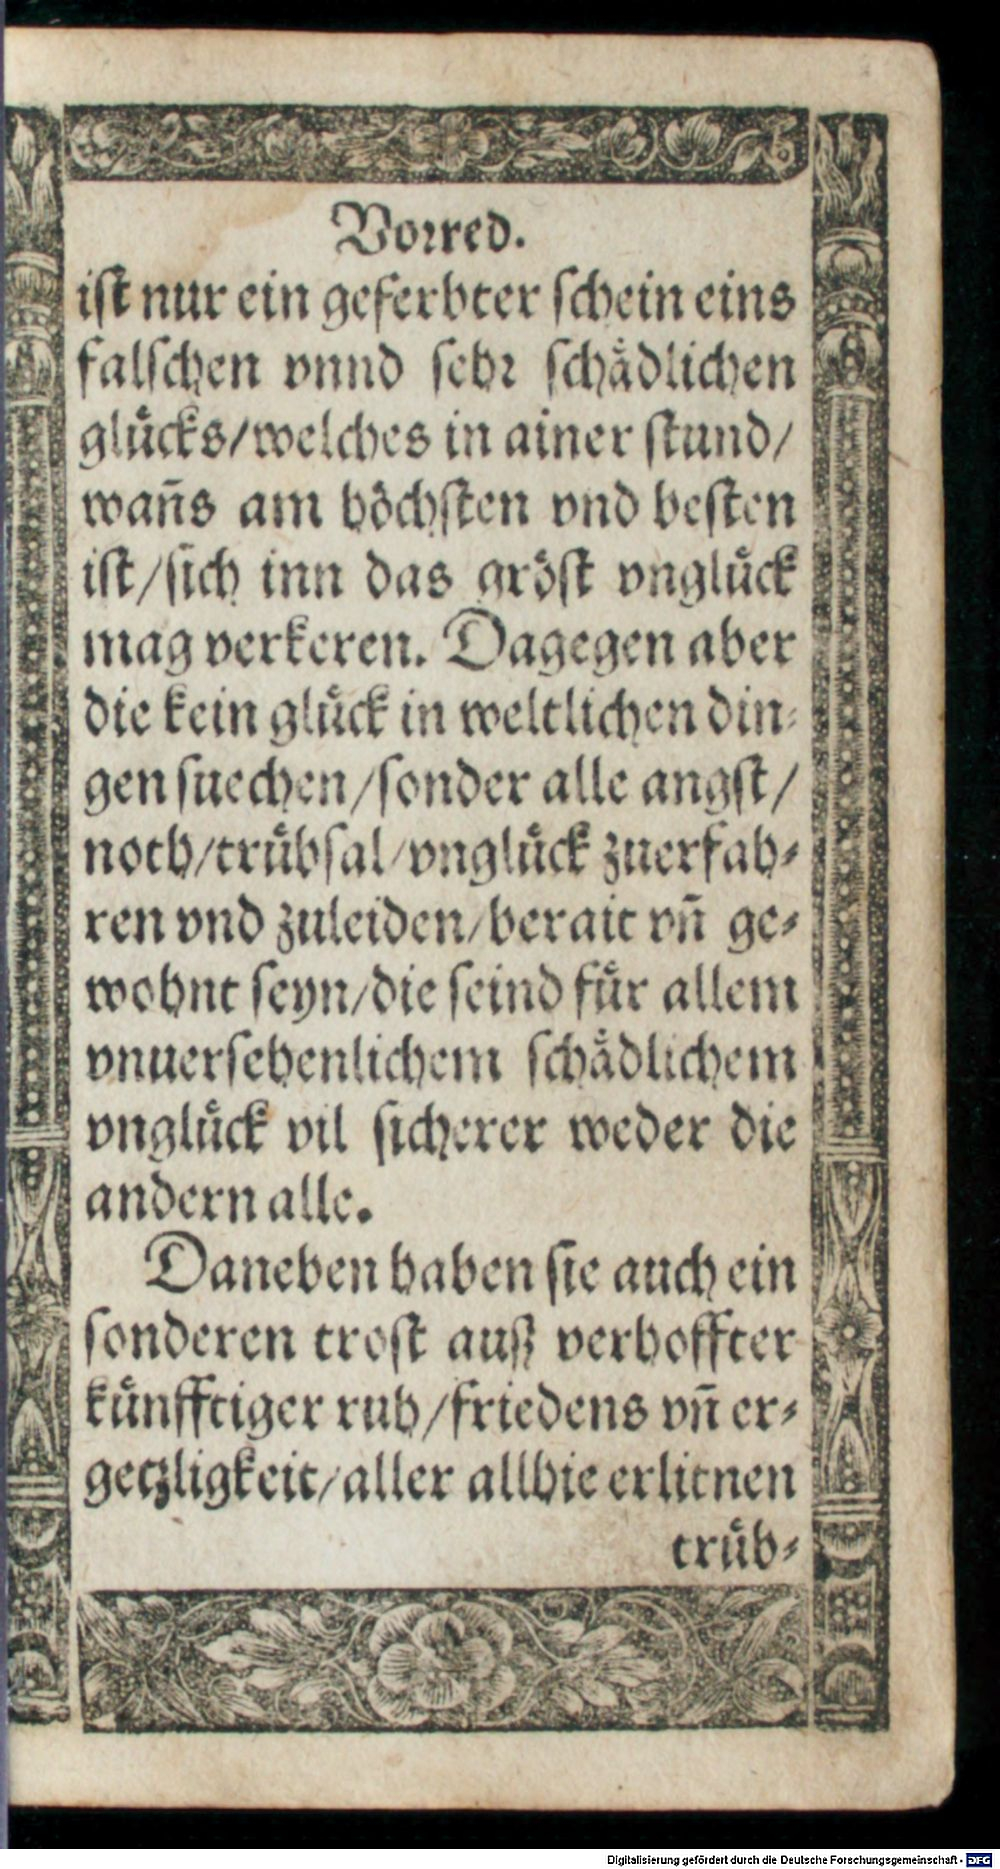 Vorred.
ist nur ein geferbter schein eins
falschen vnnd sehr schådlichen
glůcks/welches in ainer stund/
wañs am hôchsten vnd besten
ist/sich inn das grôst vnglůck
mag verkeren. Dagegen aber
die kein glůck in weltlichen din-
gen suechen/sonder alle angst/
noth/trůbsal/vnglůck zuerfah-
ren vnd zuleiden/berait vñ ge-
wohnt seyn/die seind fůr allem
vnuersehenlichem schådlichem
vnglůck vil sicherer weder die
andern alle.
Daneben haben sie auch ein
sonderen trost auß verhoffter
kůnfftiger ruh/friedens vñ er-
getzligkeit/aller allhie erlitnen
trůb-
Digitalisierung gefördert durch die Deutsche Forschungsgemeinschaft - DFG